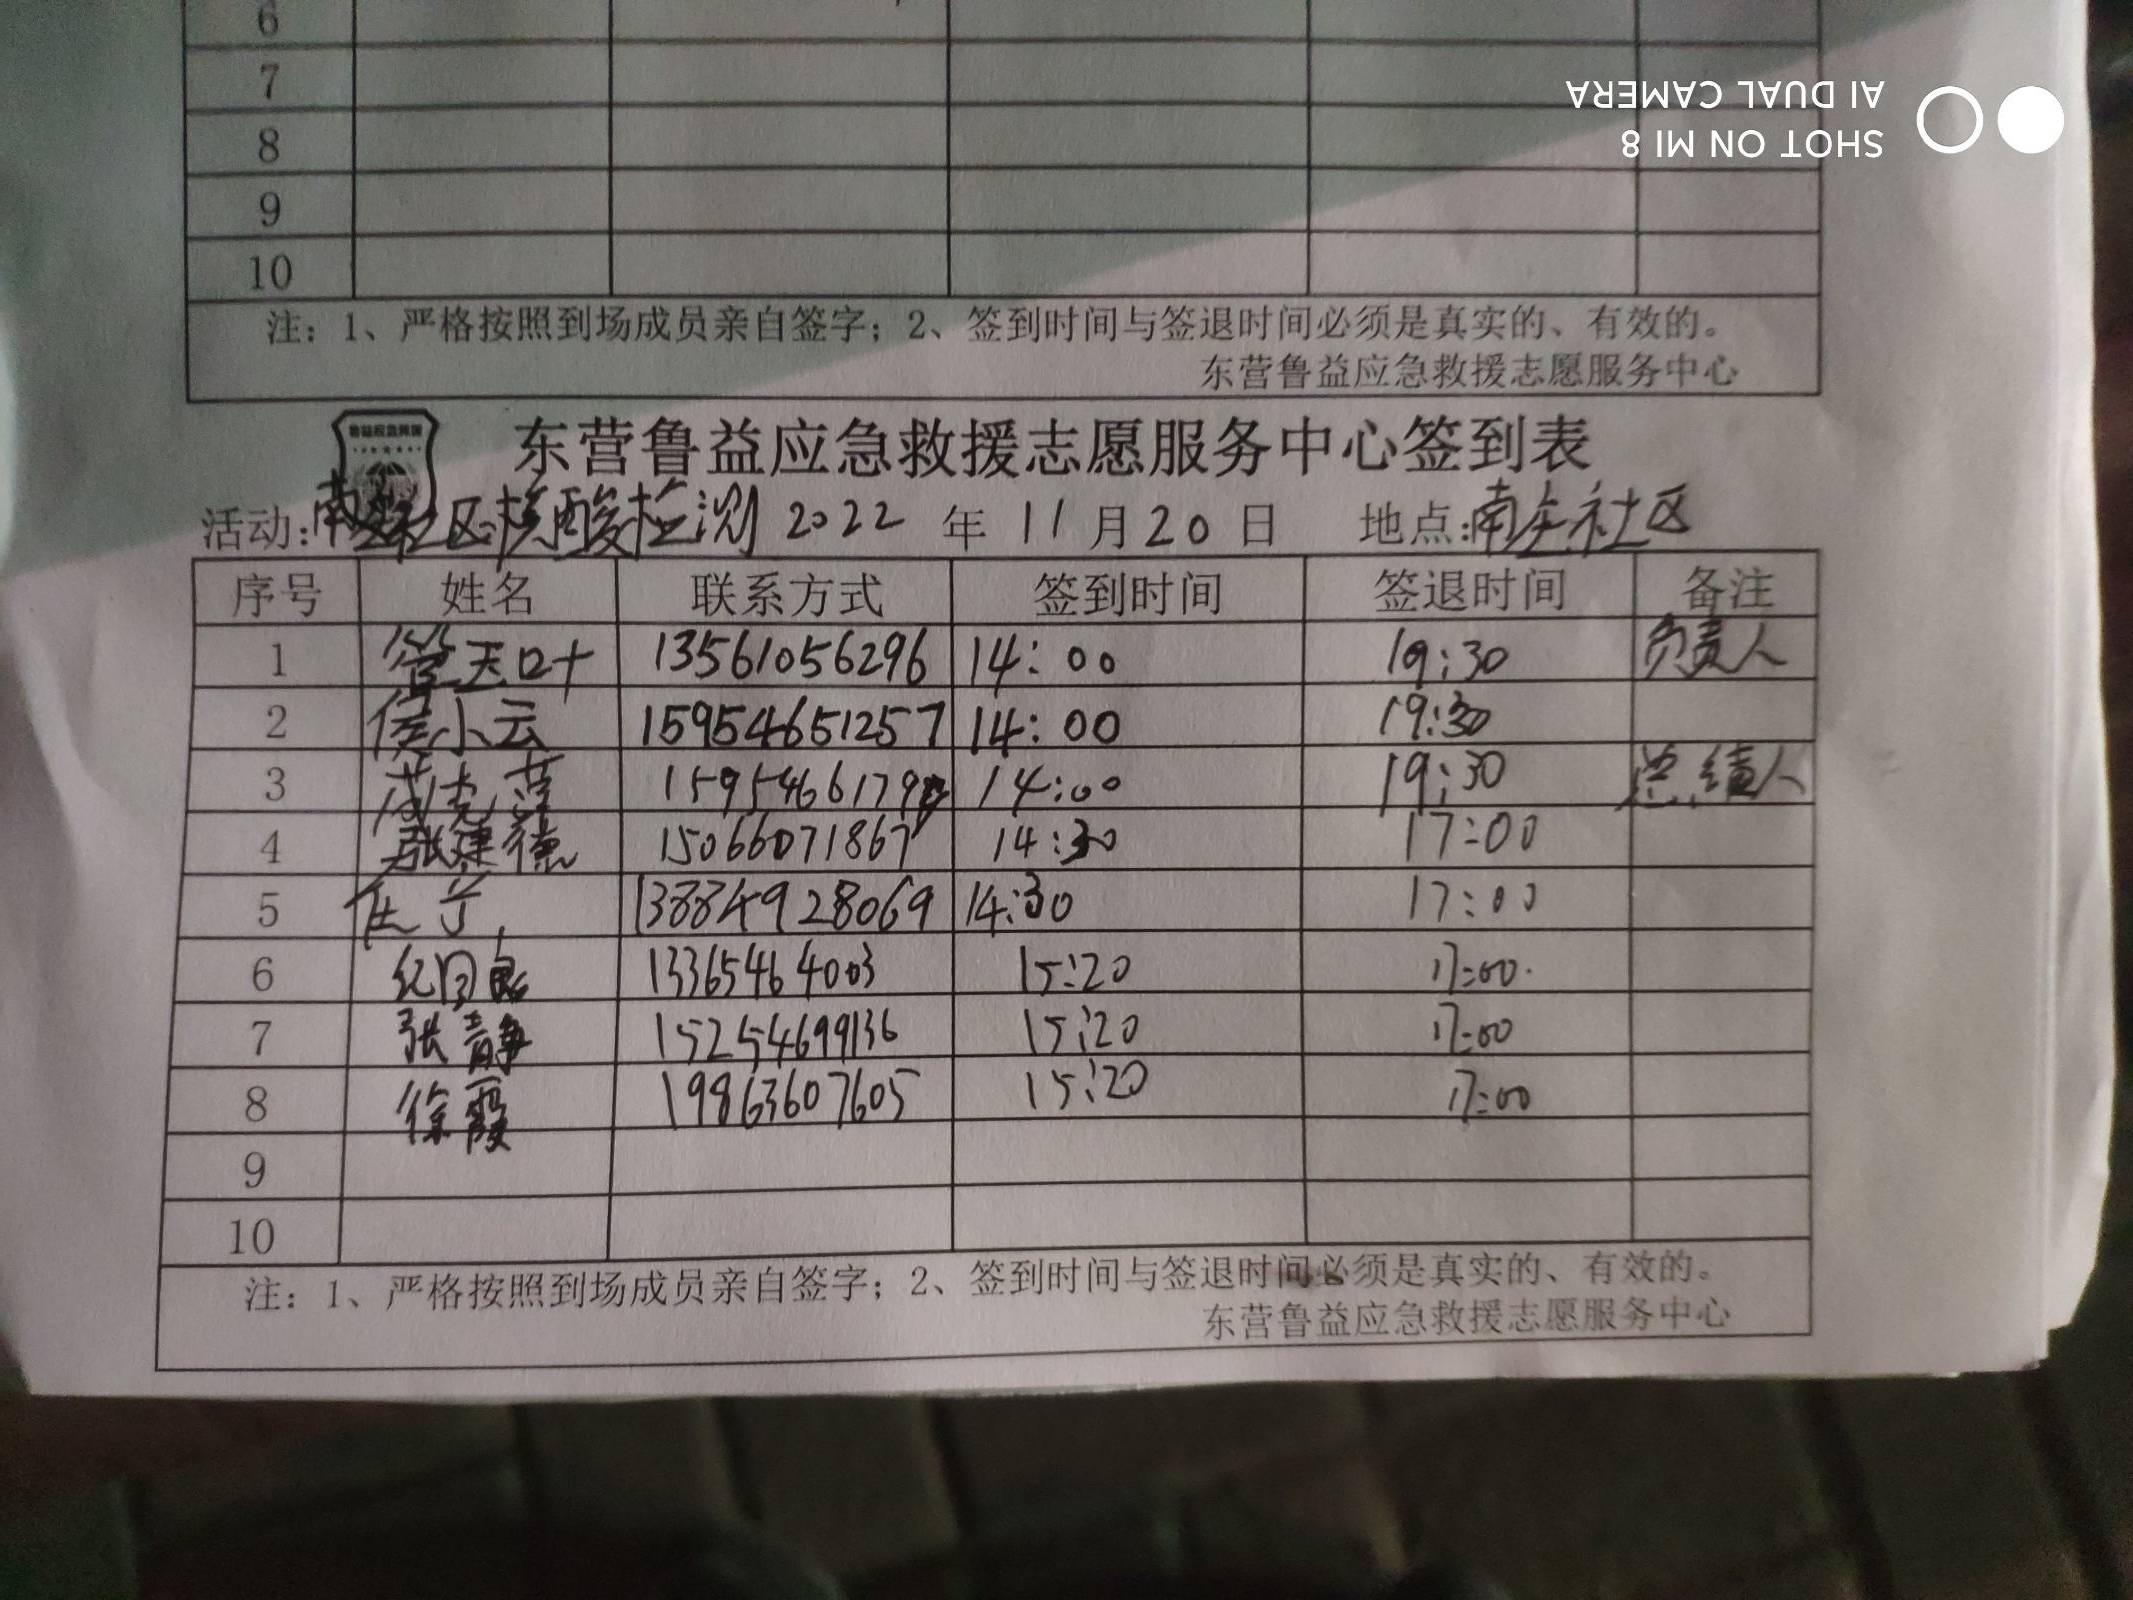 6
7
8
9
10
注：1、严格按照到场成员亲自签字；2、签到时间与签退时间必须是真实的、有效的。
东营鲁益应急救援志愿服务中心
SHOT ON MI 8
AI DUAL CAMERA
东营鲁益应急救援志愿服务中心签到表
活动：社区核酸检测 2022 年 11 月 20 日 地点：社区
序号 姓名 联系方式 签到时间 签退时间 备注
1 管玉叶 13561056296 14：00 19:30 负责人
2 侯小云 15954651257 14：00 19:30
3 1595466179 14:00 19:30 总结人
4 张建德 15066071867 14:30 17:00
5 任 13884928069 14:30 17:00
6 纪 13365464003 15:20 17:00
7 张静 15254699136 15:20 17:00
8 徐霞 19863607605 15:20 17:00
9
10
注：1、严格按照到场成员亲自签字；2、签到时间与签退时间必须是真实的、有效的。
东营鲁益应急救援志愿服务中心